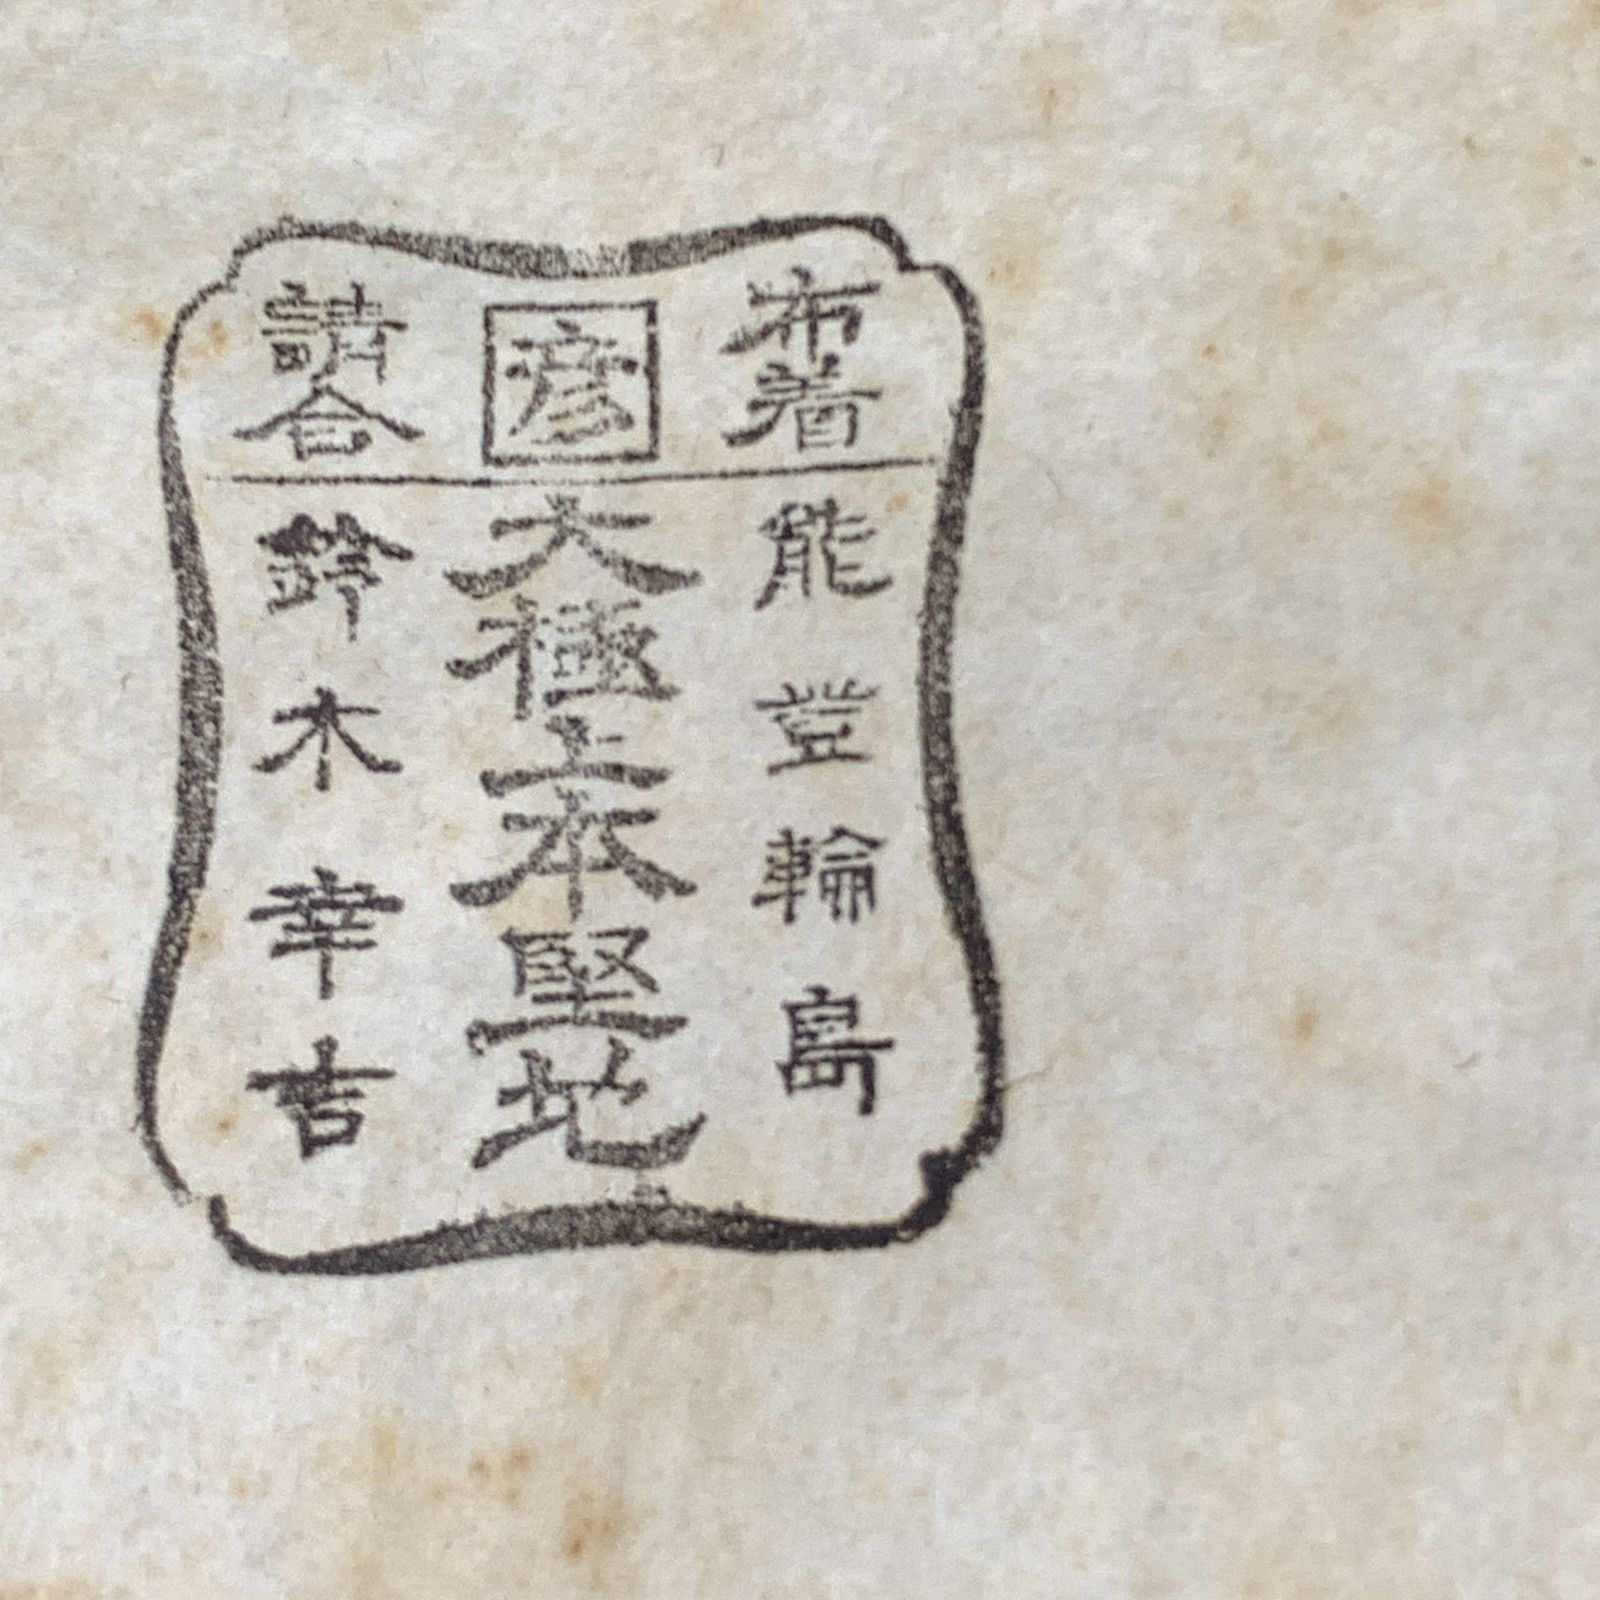 布着
彦
請合
能登輪島
大極上本堅地
鈴木幸吉